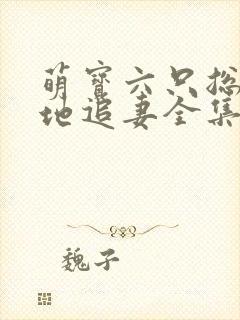 萌宝六只总
地追妻全集
魏子